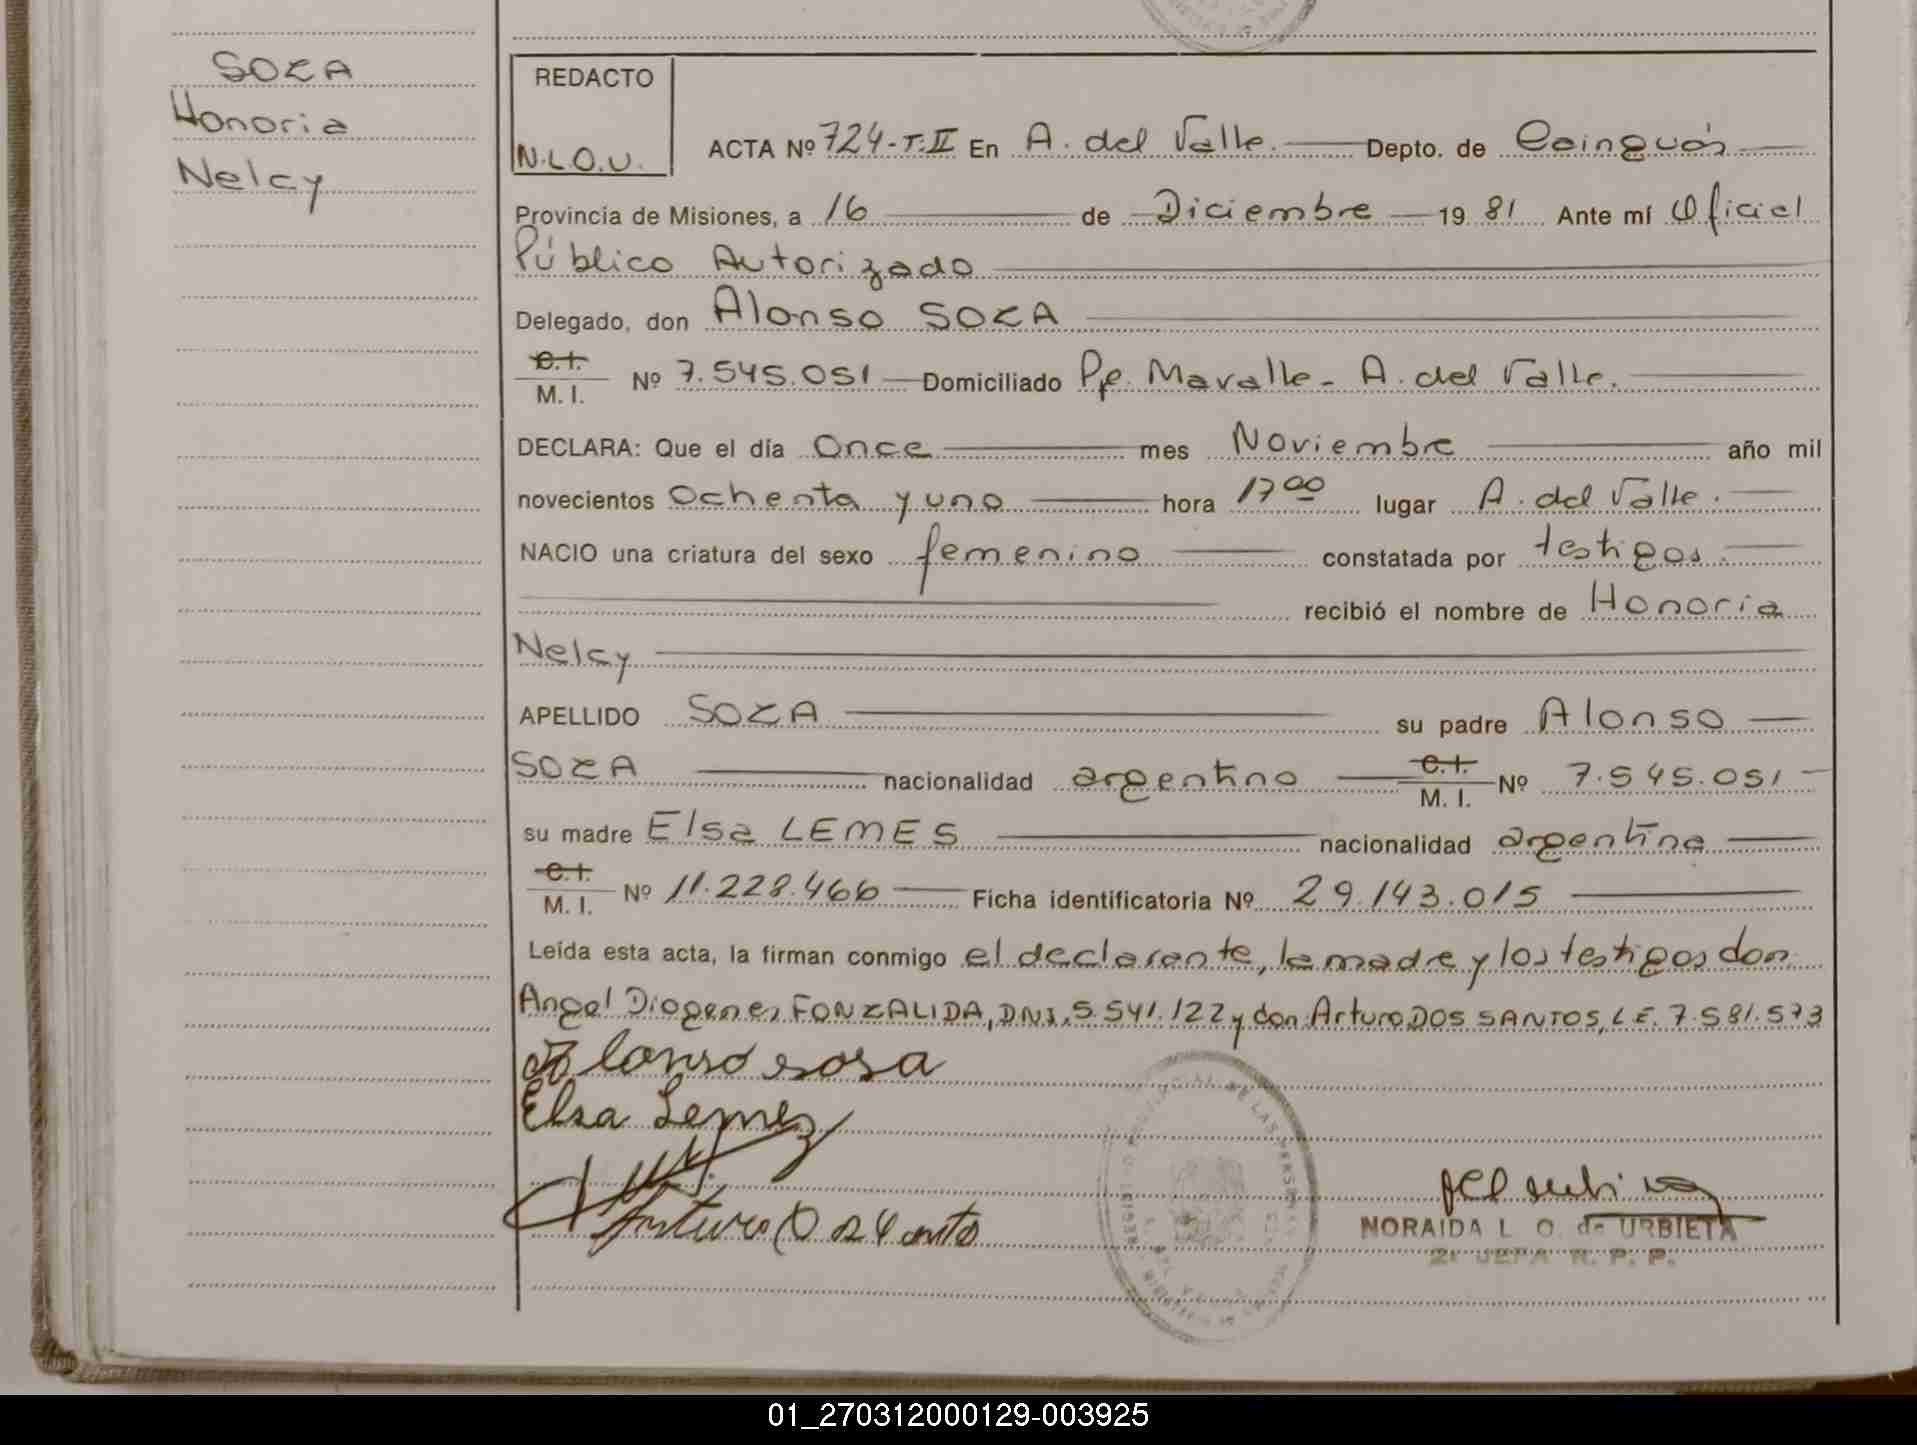 SOZA
Honoria
Nelcy
REDACTO
N.L.O.U.
ACTA Nº 724-T.II En A. del Valle. Depto. de Cainguás
Provincia de Misiones, a 16 de Diciembre 19 81 Ante mí Oficial
Público Autorizado
Delegado, don Alonso SOZA
C.I.
M. I. Nº 7.545.051 Domiciliado Pje. Mavalle - A. del Valle.
DECLARA: Que el día Once mes Noviembre año mil
novecientos Ochenta y uno hora 17 00 lugar A. del Valle.
NACIO una criatura del sexo femenino constatada por testigos.
recibió el nombre de Honoria
Nelcy
APELLIDO SOZA su padre Alonso
SOZA nacionalidad argentino C.I. M. I. Nº 7.545.051
su madre Elsa LEMES nacionalidad argentina
C.I.
M. I. Nº 11.228.466 Ficha identificatoria Nº 29.143.015
Leída esta acta, la firman conmigo el declarante, la madre y los testigos don
Angel Diogenes FONZALIDA, DNI. 5.541.122 y don Arturo DOS SANTOS, L.E. 7.581.573
Alonso sosa
Elsa Lemez
Arturo
NORAIDA L. O. de URBIETA
2ª JEFA R. P. P.
01_270312000129-003925